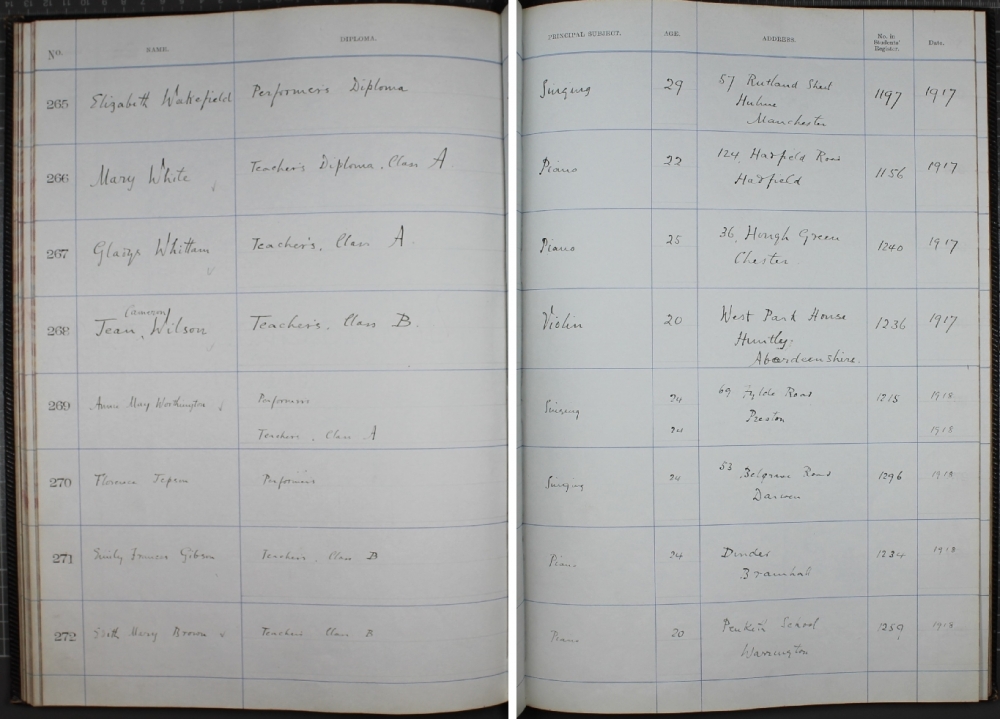 No. NAME. DIPLOMA. PRINCIPAL SUBJECT. AGE. ADDRESS. No. in Students' Register. Date.
265 Elizabeth Wakefield Performer's Diploma Singing 29 57 Rutland Street 1197 1917
Hulme
Manchester
266 Mary White Teacher's Diploma, Class A Piano 22 124, Hadfield Road 1156 1917
Hadfield
267 Gladys Whittam Teacher's, Class A. Piano 25 36, Hough Green 1240 1917
Chester
Cameron
268 Jean Wilson Teacher's, Class B. Violin 20 West Park House 1236 1917
Huntly,
Aberdeenshire.
269 Annie May Worthington Performers Singing 24 69 Fylde Road 1215 1918
Preston
Teachers, Class A 24 1918
270 Florence Performers Singing 24 53 Belgrave Road 1296 1918
Darwen
271 Emily Frances Gibson Teachers, Class B Piano 24 1234 1918
Bramhall
272 Edith Mary Brown Teachers Class B Piano 20 Penketh School 1259 1918
Warrington